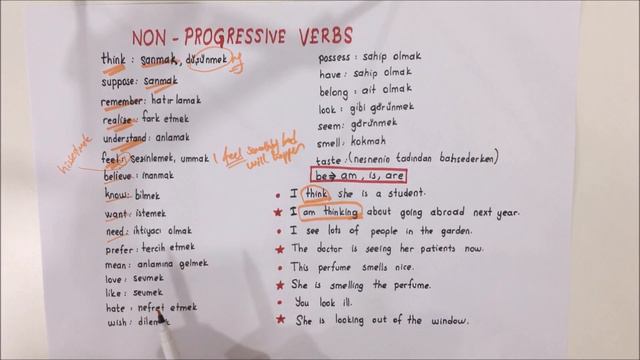 NON - PROGRESSIVE VERBS
think : sanmak, düşünmek
suppose: sanmak
remember: hatırlamak
realise: fark etmek
understand: anlamak
feel: sezinlemek, ummak
I feel something bad
will happen
hissetmek
believe: inanmak
know: bilmek
want: istemek
need: ihtiyacı olmak
prefer: tercih etmek
mean: anlamına gelmek
love: sevmek
like: sevmek
hate: nefret etmek
wish: dilemek
possess: sahip olmak
have: sahip olmak
belong: ait olmak
look: gibi görünmek
seem: görünmek
smell: kokmak
taste: (nesnenin tadından bahsederken)
be→ am, is, are
• I think she is a student.
★ I am thinking about going abroad next year.
• I see lots of people in the garden.
★ The doctor is seeing her patients now.
• This perfume smells nice.
★ She is smelling the perfume.
• You look ill.
★ She is looking out of the window.